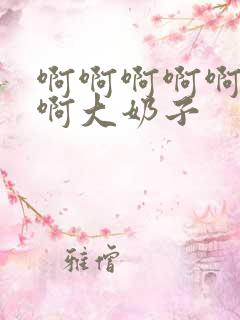 啊啊啊啊啊
啊大奶子
雅僧